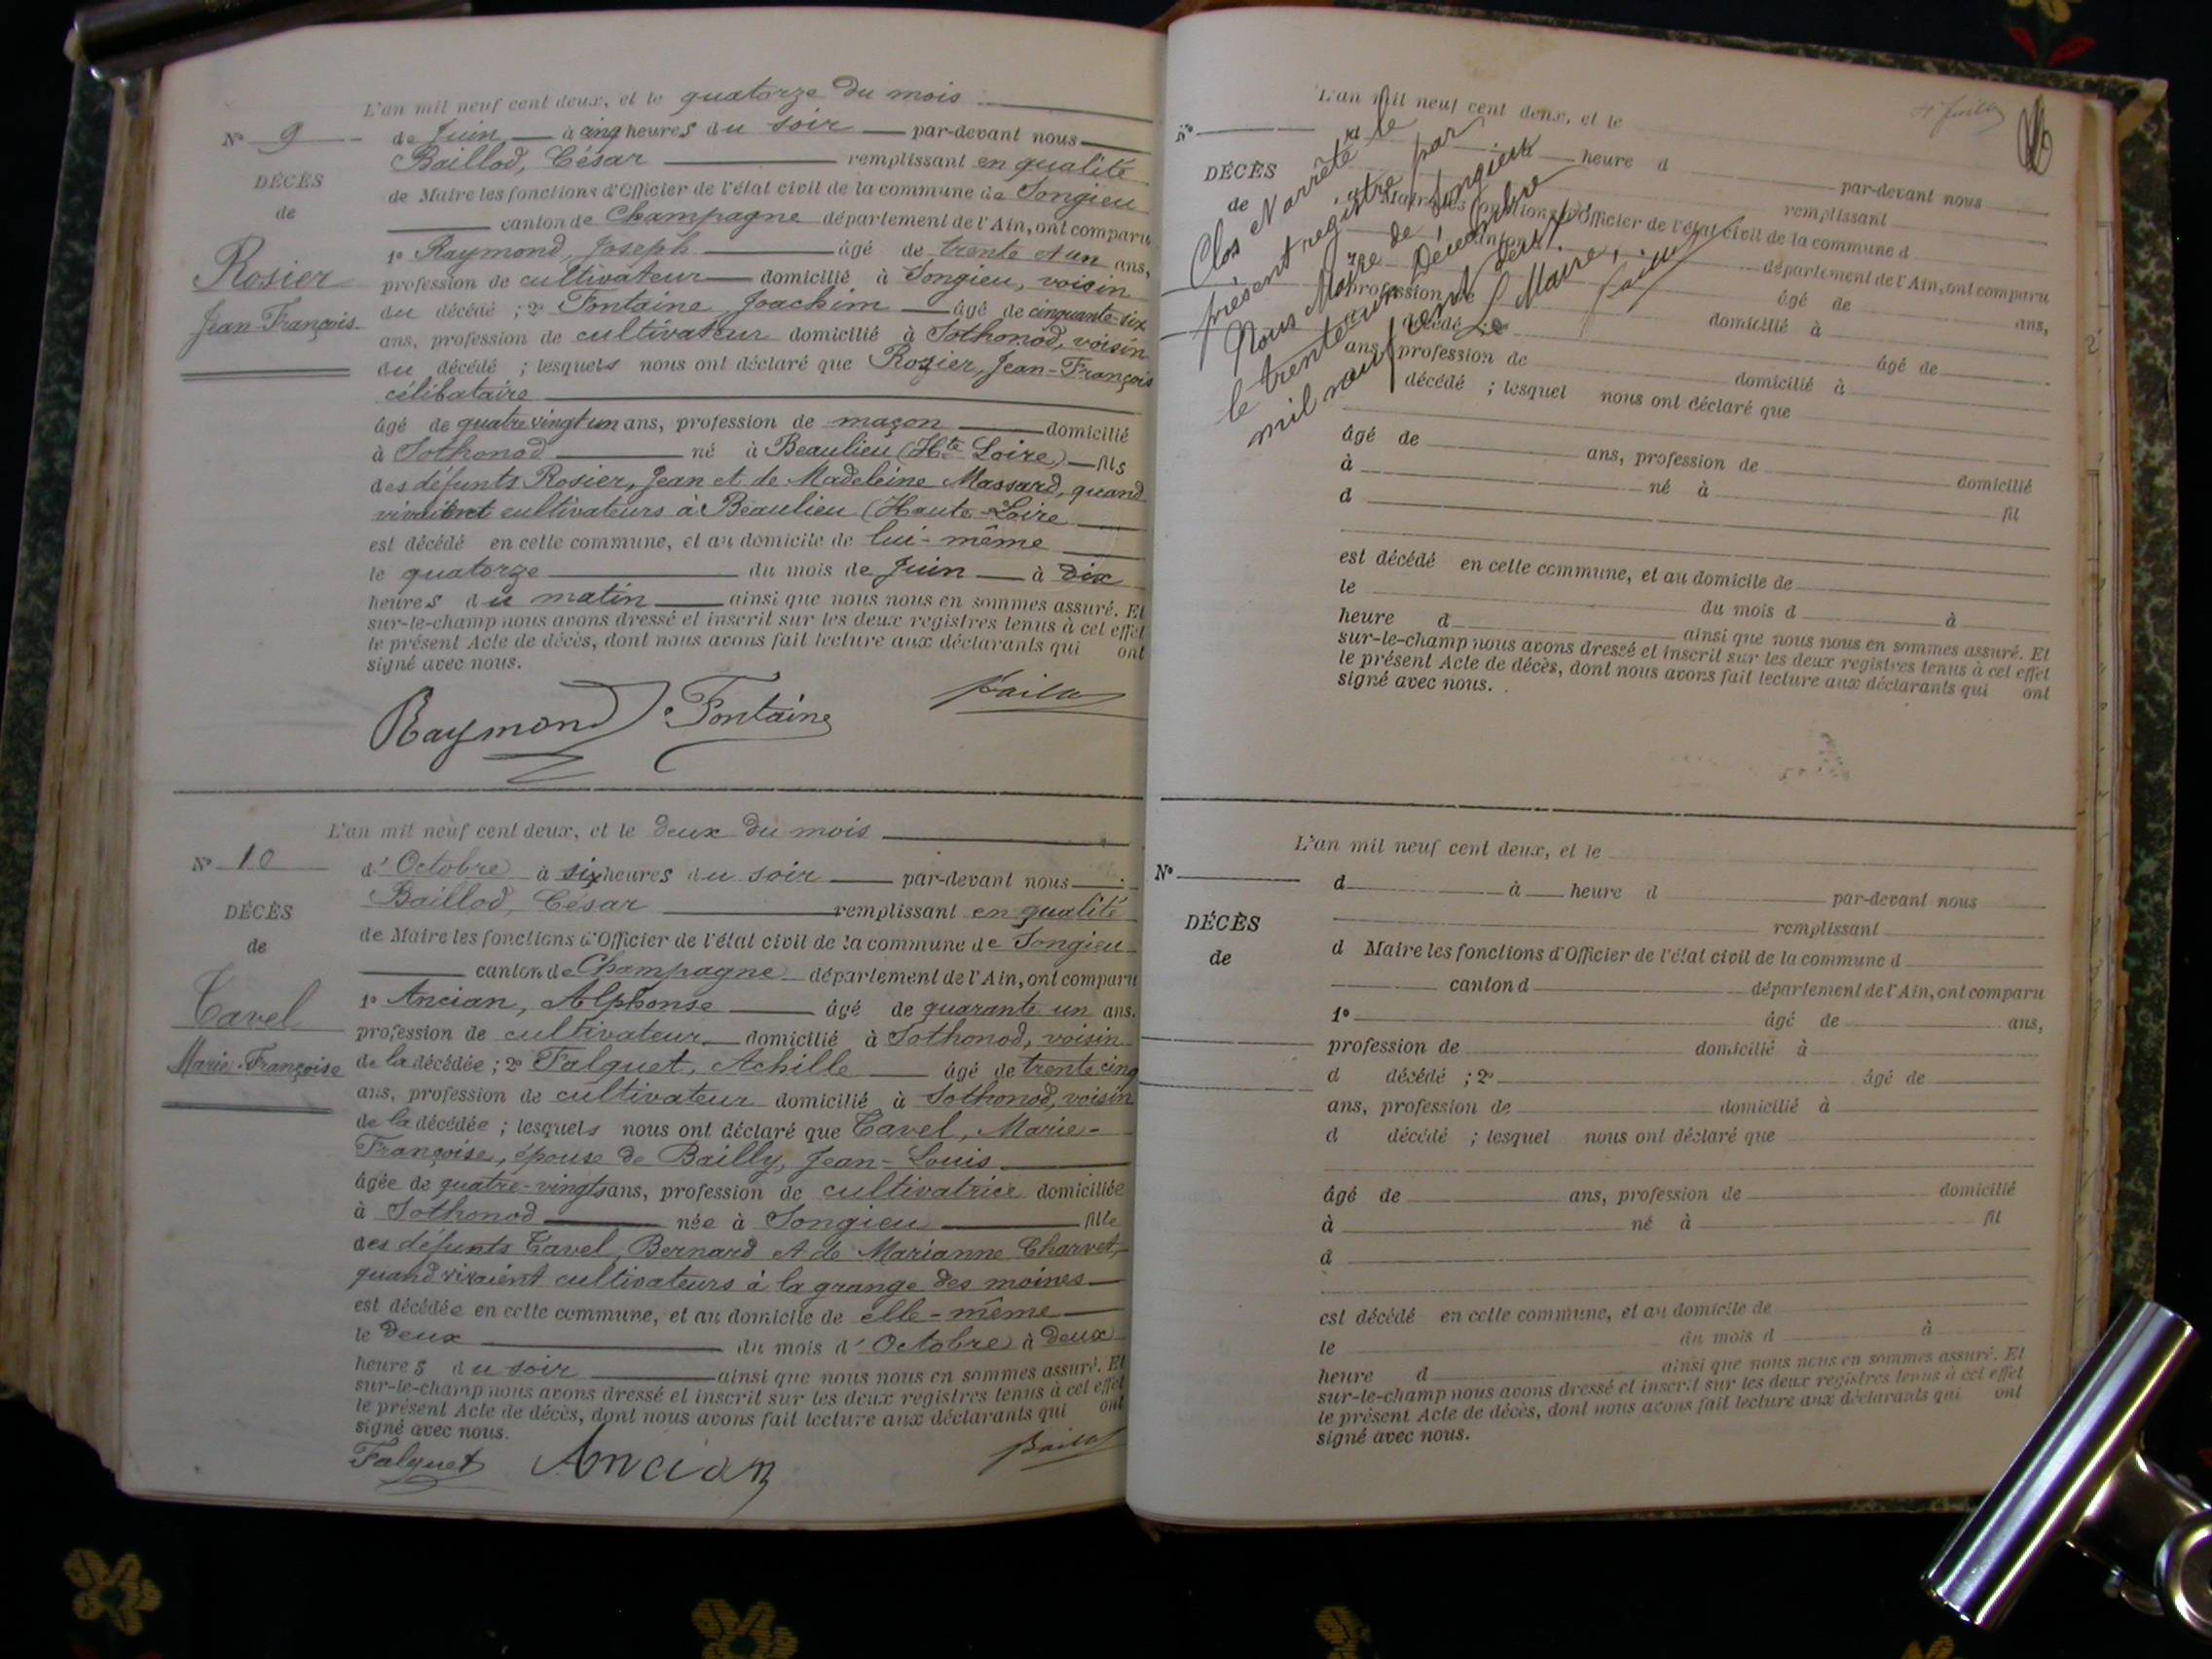 L'an mil neuf cent deux, et le quatorze du mois
N° 9
de Juin à cinq heures du soir par-devant nous
Baillod, César remplissant en qualité
DÉCÈS
de Maire les fonctions d'Officier de l'état civil de la commune de Songieu
de
canton de Champagne département de l'Ain, ont comparu
1° Raymond, Joseph âgé de trente et un ans,
Rosier
profession de cultivateur domicilié à Songieu, voisin
du décédé ; 2° Fontaine Joachim âgé de cinquante-six
Jean-François
ans, profession de cultivateur domicilié à Sothonod, voisin
du décédé ; lesquels nous ont déclaré que Rozier, Jean-François
célibataire
âgé de quatre vingt un ans, profession de maçon domicilié
à Sothonod né à Beaulieu (Hte Loire) fils
des défunts Rosier, Jean et de Madeleine Massard, quand
vivaient cultivateurs à Beaulieu (Haute-Loire
est décédé en cette commune, et au domicile de lui-même
le quatorze du mois de Juin à dix
heures du matin ainsi que nous nous en sommes assuré. Et
sur-le-champ nous avons dressé et inscrit sur les deux registres tenus à cet effet
le présent Acte de décès, dont nous avons fait lecture aux déclarants qui ont
signé avec nous.
Raymond Fontaine
L'an mil neuf cent deux, et le deux du mois
N° 10
d'Octobre à six heures du soir par-devant nous
Baillod, César remplissant en qualité
DÉCÈS
de Maire les fonctions d'Officier de l'état civil de la commune de Songieu
de
canton de Champagne département de l'Ain, ont comparu
1° Ancian, Alphonse âgé de quarante un ans.
Cavel
profession de cultivateur domicilié à Sothonod, voisin
Marie-Françoise
de la décédée ; 2° Falquet, Achille âgé de trente cinq
ans, profession de cultivateur domicilié à Sothonod, voisin
de la décédée ; lesquels nous ont déclaré que Cavel, Marie-
Françoise, épouse de Bailly, Jean-Louis
âgée de quatre-vingts ans, profession de cultivatrice domiciliée
à Sothonod née à Songieu fille
des défunts Cavel, Bernard et de Marianne Charvet,
quand vivaient cultivateurs à la grange des moines
est décédée en cette commune, et au domicile de elle-même
le deux du mois d'Octobre à deux
heures du soir ainsi que nous nous en sommes assuré. Et
sur-le-champ nous avons dressé et inscrit sur les deux registres tenus à cet effet
le présent Acte de décès, dont nous avons fait lecture aux déclarants qui ont
signé avec nous.
Falquet Ancian
L'an mil neuf cent deux, et le
N°
heure d par-devant nous
DÉCÈS
remplissant
de
Maire les fonctions d'Officier de l'état civil de la commune d
département de l'Ain, ont comparu
âgé de ans,
profession de domicilié à
décédé âgé de
ans, profession de domicilié à
décédé ; lesquel nous ont déclaré que
Clos et arrêté le
présent registre par
Nous Maire de Songieu
le trente un Décembre
mil neuf cent deux.
Le Maire,
âgé de ans, profession de domicilié
à né à fil
d
est décédé en cette commune, et au domicile de
le du mois d à
heure d ainsi que nous nous en sommes assuré. Et
sur-le-champ nous avons dressé et inscrit sur les deux registres tenus à cet effet
le présent Acte de décès, dont nous avons fait lecture aux déclarants qui ont
signé avec nous.
L'an mil neuf cent deux, et le
N°
d à heure d par-devant nous
DÉCÈS
remplissant
de
d Maire les fonctions d'Officier de l'état civil de la commune d
canton d département de l'Ain, ont comparu
1° âgé de ans,
profession de domicilié à
d décédé ; 2° âgé de
ans, profession de domicilié à
d décédé ; lesquel nous ont déclaré que
âgé de ans, profession de domicilié
à né à fil
d
est décédé en cette commune, et au domicile de
le du mois d à
heure d ainsi que nous nous en sommes assuré. Et
sur-le-champ nous avons dressé et inscrit sur les deux registres tenus à cet effet
le présent Acte de décès, dont nous avons fait lecture aux déclarants qui ont
signé avec nous.